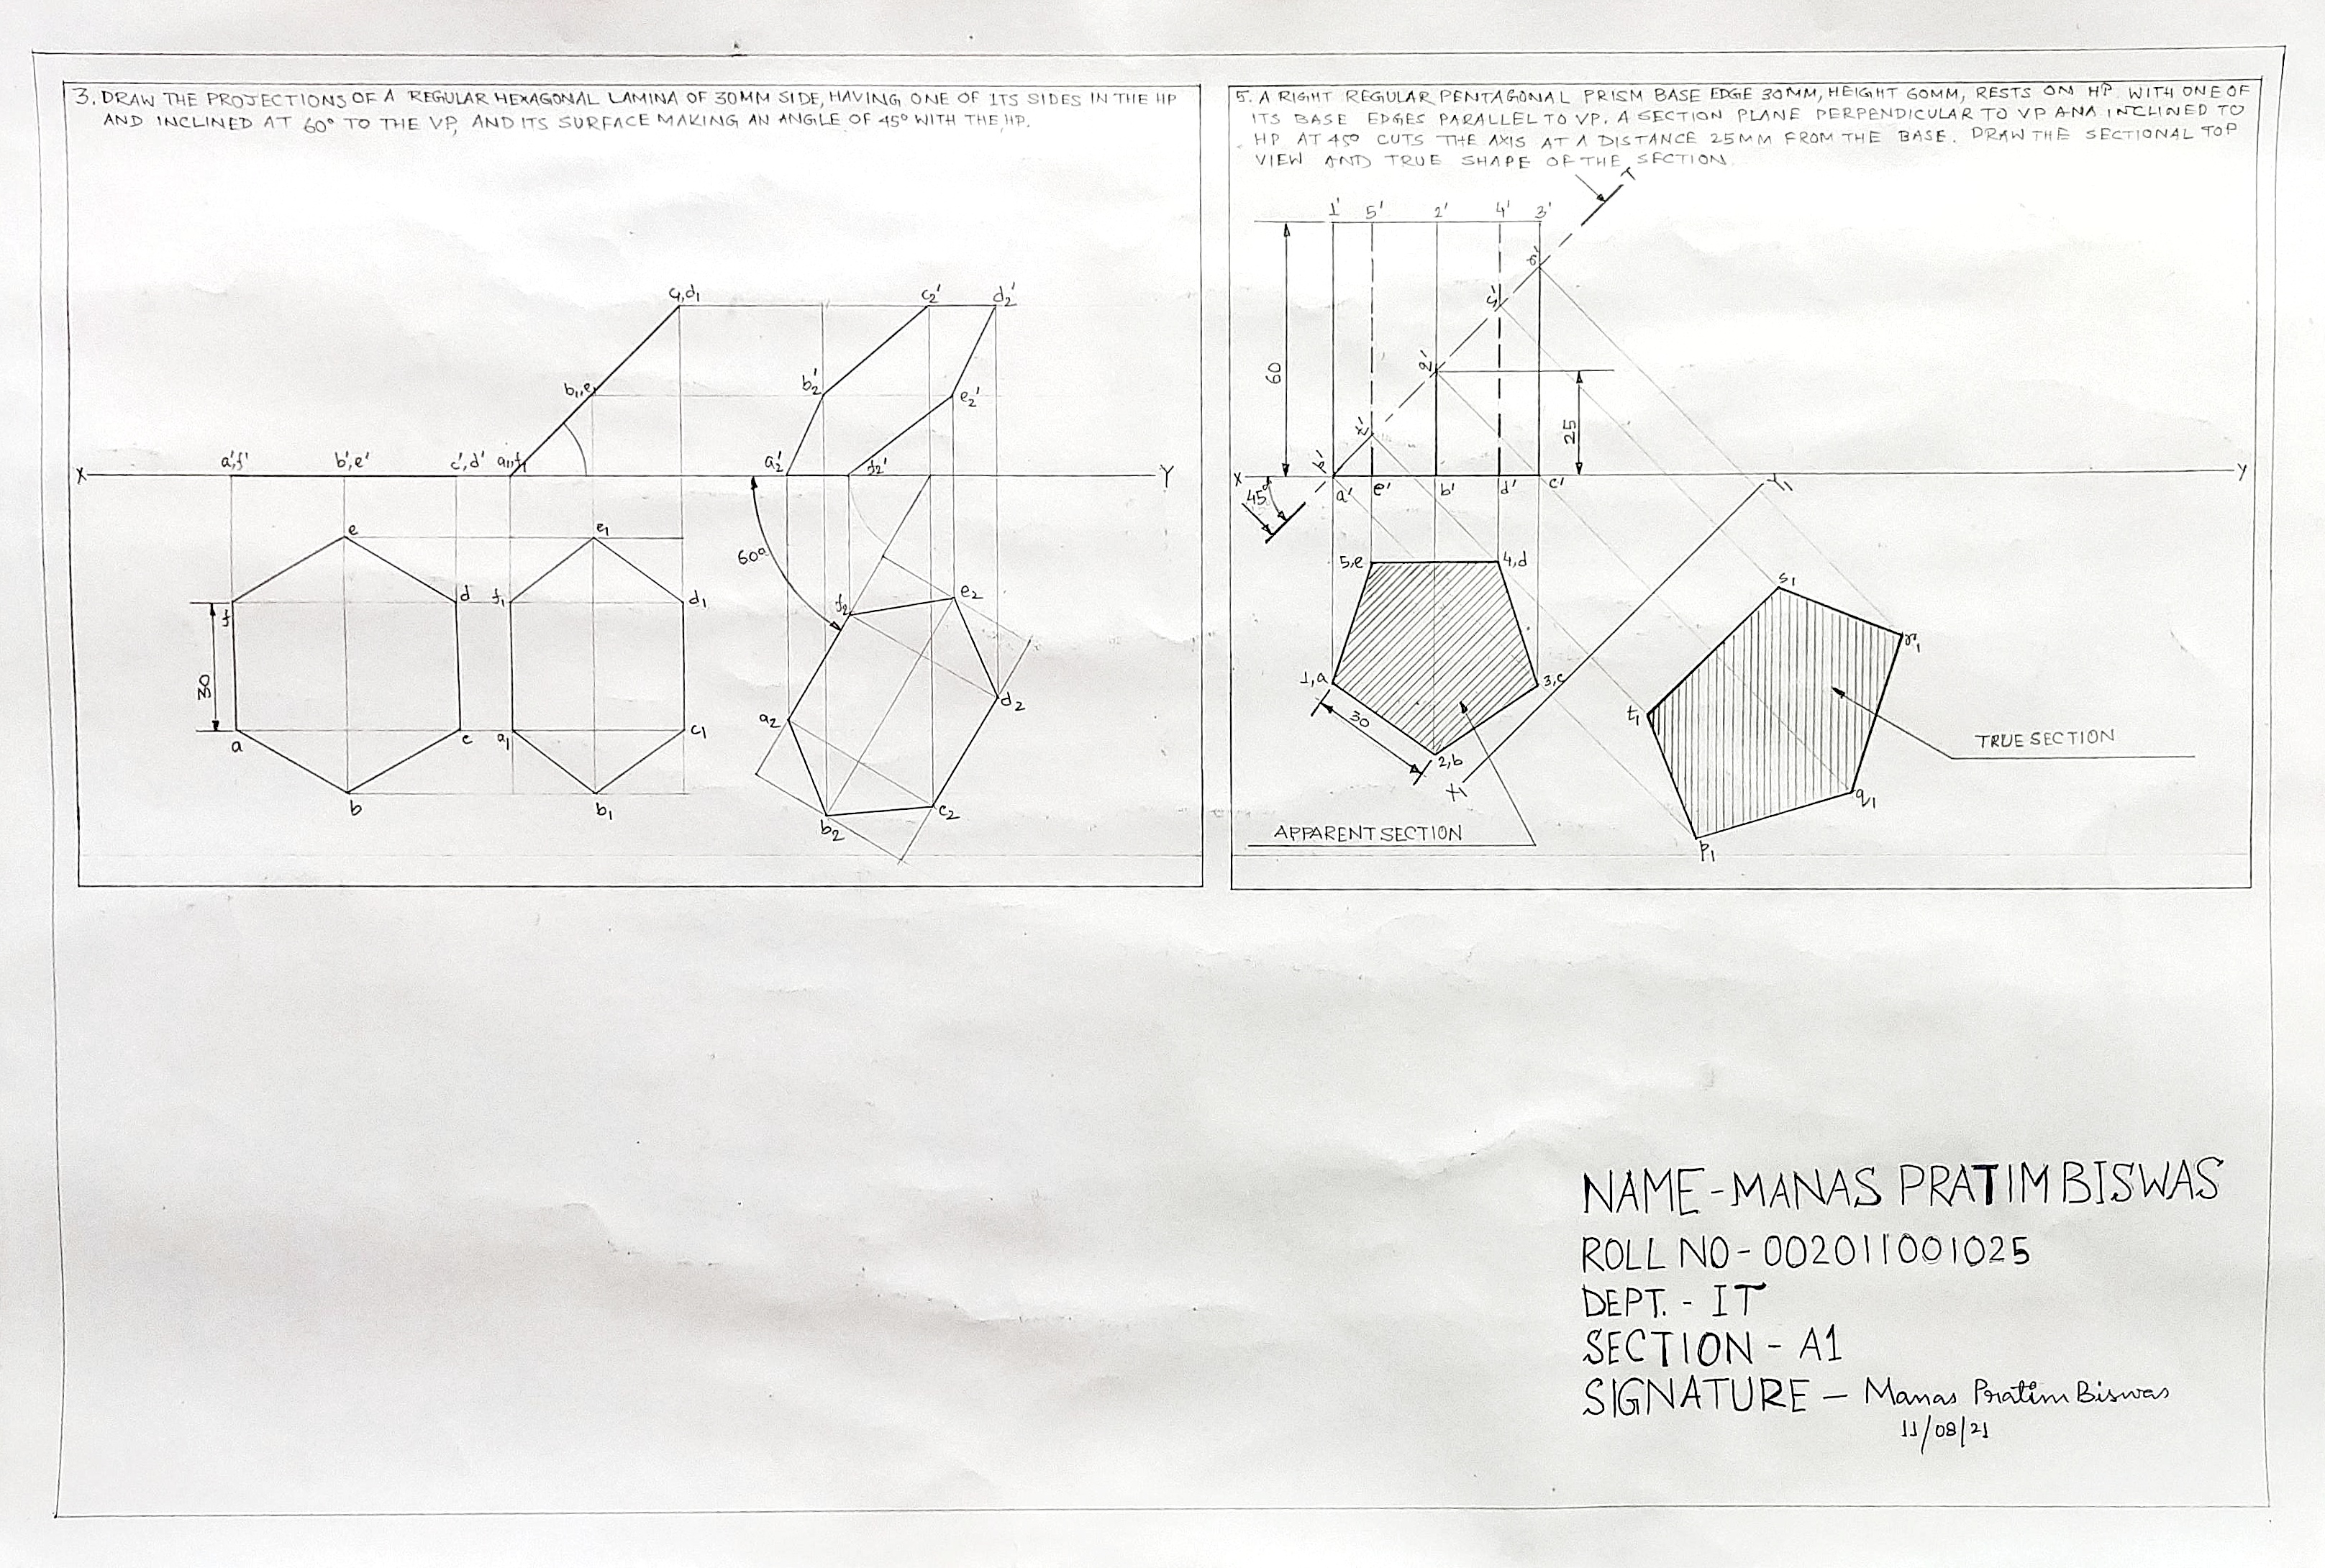 3. DRAW THE PROJECTIONS OF A REGULAR HEXAGONAL LAMINA OF 30MM SIDE, HAVING ONE OF ITS SIDES IN THE HP
AND INCLINED AT 60° TO THE VP, AND ITS SURFACE MAKING AN ANGLE OF 45° WITH THE HP.
c₁,d₁
c₂'
d₂'
b₁,e₁
b₂'
e₂'
X
a',f'
b',e'
c',d'
a₁,f₁
a₂'
f₂'
Y
60°
e
e₁
f
d
f₁
d₁
f₂
e₂
30
a₂
d₂
a
c
a₁
c₁
b
b₁
b₂
c₂
5. A RIGHT REGULAR PENTAGONAL PRISM BASE EDGE 30MM, HEIGHT 60MM, RESTS ON HP WITH ONE OF
ITS BASE EDGES PARALLEL TO VP. A SECTION PLANE PERPENDICULAR TO VP ANA INCLINED TO
HP AT 45° CUTS THE AXIS AT A DISTANCE 25MM FROM THE BASE. DRAW THE SECTIONAL TOP
VIEW AND TRUE SHAPE OF THE SECTION.
T
1'
5'
2'
4'
3'
r'
s'
60
q'
25
t'
p'
X
a'
e'
b'
d'
c'
Y₁
Y
45°
5,e
4,d
1,a
3,c
30
2,b
X₁
s₁
r₁
t₁
q₁
p₁
TRUE SECTION
APPARENT SECTION
NAME-MANAS PRATIM BISWAS
ROLL NO-002011001025
DEPT. - IT
SECTION - A1
SIGNATURE - Manas Pratim Biswas
11/08/21